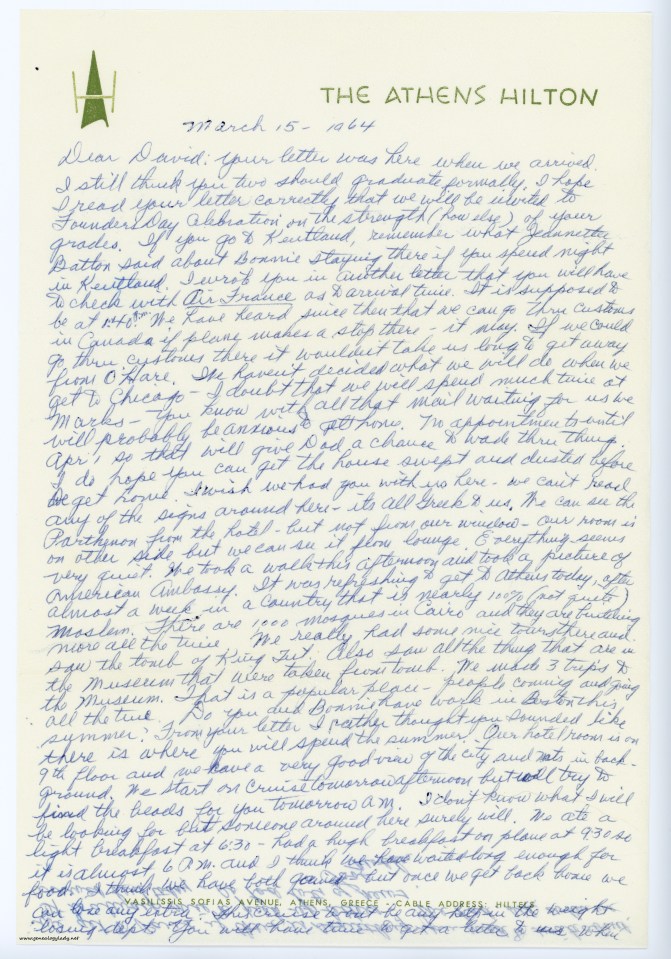 THE ATHENS HILTON
March 15 - 1964
Dear David: your letter was here when we arrived.
I still think you two should graduate formally. I hope
I read your letter correctly that we will be invited to
Founders Day Celebration on the strength (how else) of your
grades. If you go to Kentland, remember what Jeannette
said about Bonnie staying there if you spend night
in Kentland. I wrote you in another letter that you will have
to check with Air France as to arrival time. It is supposed to
be at 1:40 pm We have heard since then that we can go thru customs
in Canada if plane makes a stop there - it may. If we could
go thru customs there it wouldn't take us long to get away
from O'Hare. We haven't decided what we will do when we
get to Chicago - I doubt that we will spend much time at
Marks - you know with all that mail waiting for us we
will probably be anxious to get home. No appointments until
Apr 1, so that will give Dad a chance to wade thru thing.
I do hope you can get the house swept and dusted before
we get home. I wish we had you with us here - we can't read
any of the signs around here - its all Greek to us. We can see the
Parthenon from the hotel - but not from our window - our room is
on other side but we can see it from lounge. Everything seems
very quiet. We took a walk this afternoon and took a picture of
American Embassy. It was refreshing to get to Athens today, after
almost a week in a country that is nearly 100% (not quite)
Moslem. There are 1000 mosques in Cairo and they are building
more all the time We really had some nice tours there and
saw the tomb of King Tut. Also saw all the thing that are in
the Museum that were taken from tomb. We made 3 trips to
the Museum. That is a popular place - people coming and going
all the time. Do you and Bonnie have work in Boston this
summer? From your letter I rather thought you sounded like
there is where you will spend the summer. Our hotel room is on
9th floor and we have a very good view of the city and mts in back-
ground. We start on cruise tomorrow afternoon but will try to
find the beads for you tomorrow A.M. I don't know what I will
be looking for but someone around here surely will. We ate a
light breakfast at 6:30 - had a hugh breakfast on plane at 9:30 so
it is almost 6 P.M. and I think we have waited long enough for
food. I think we have both gained - but once we get back home we
can lose any extra - this cruise wont be any help in the weight
VASILISSIS SOFIAS AVENUE, ATHENS, GREECE - CABLE ADDRESS: HILTELS
losing dept. You will have time to get a letter to us when
www.genealogylady.net